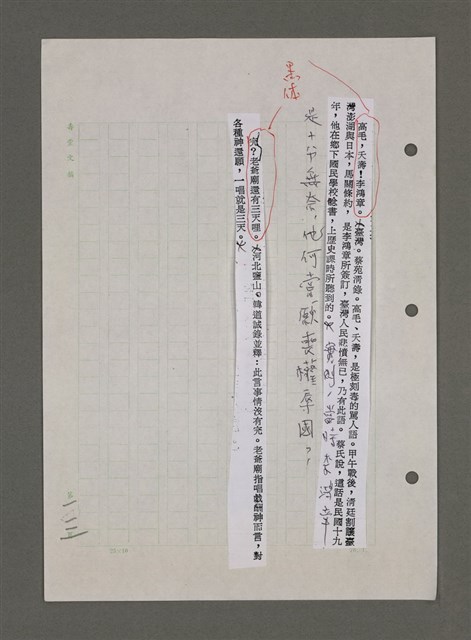 黑体
高毛，夭壽！李鴻章。臺灣。蔡苑清錄。高毛、夭壽，是極刻毒的罵人語。甲午戰後，清廷割讓臺
灣澎湖與日本，馬關條約，是李鴻章所簽訂，臺灣人民悲憤無已，乃有此語。蔡氏說，這話是民國十九
年，他在鄉下國民學校唸書，上歷史課時所聽到的。實則，當時李鴻章
是十分無奈，他何嘗願喪權辱國？
完？老爺廟還有三天哩。河北鹽山。韓道誠錄並釋：此言事情沒有完。老爺廟指唱戲酬神而言，對
各種神還願，一唱就是三天。
第
一二三